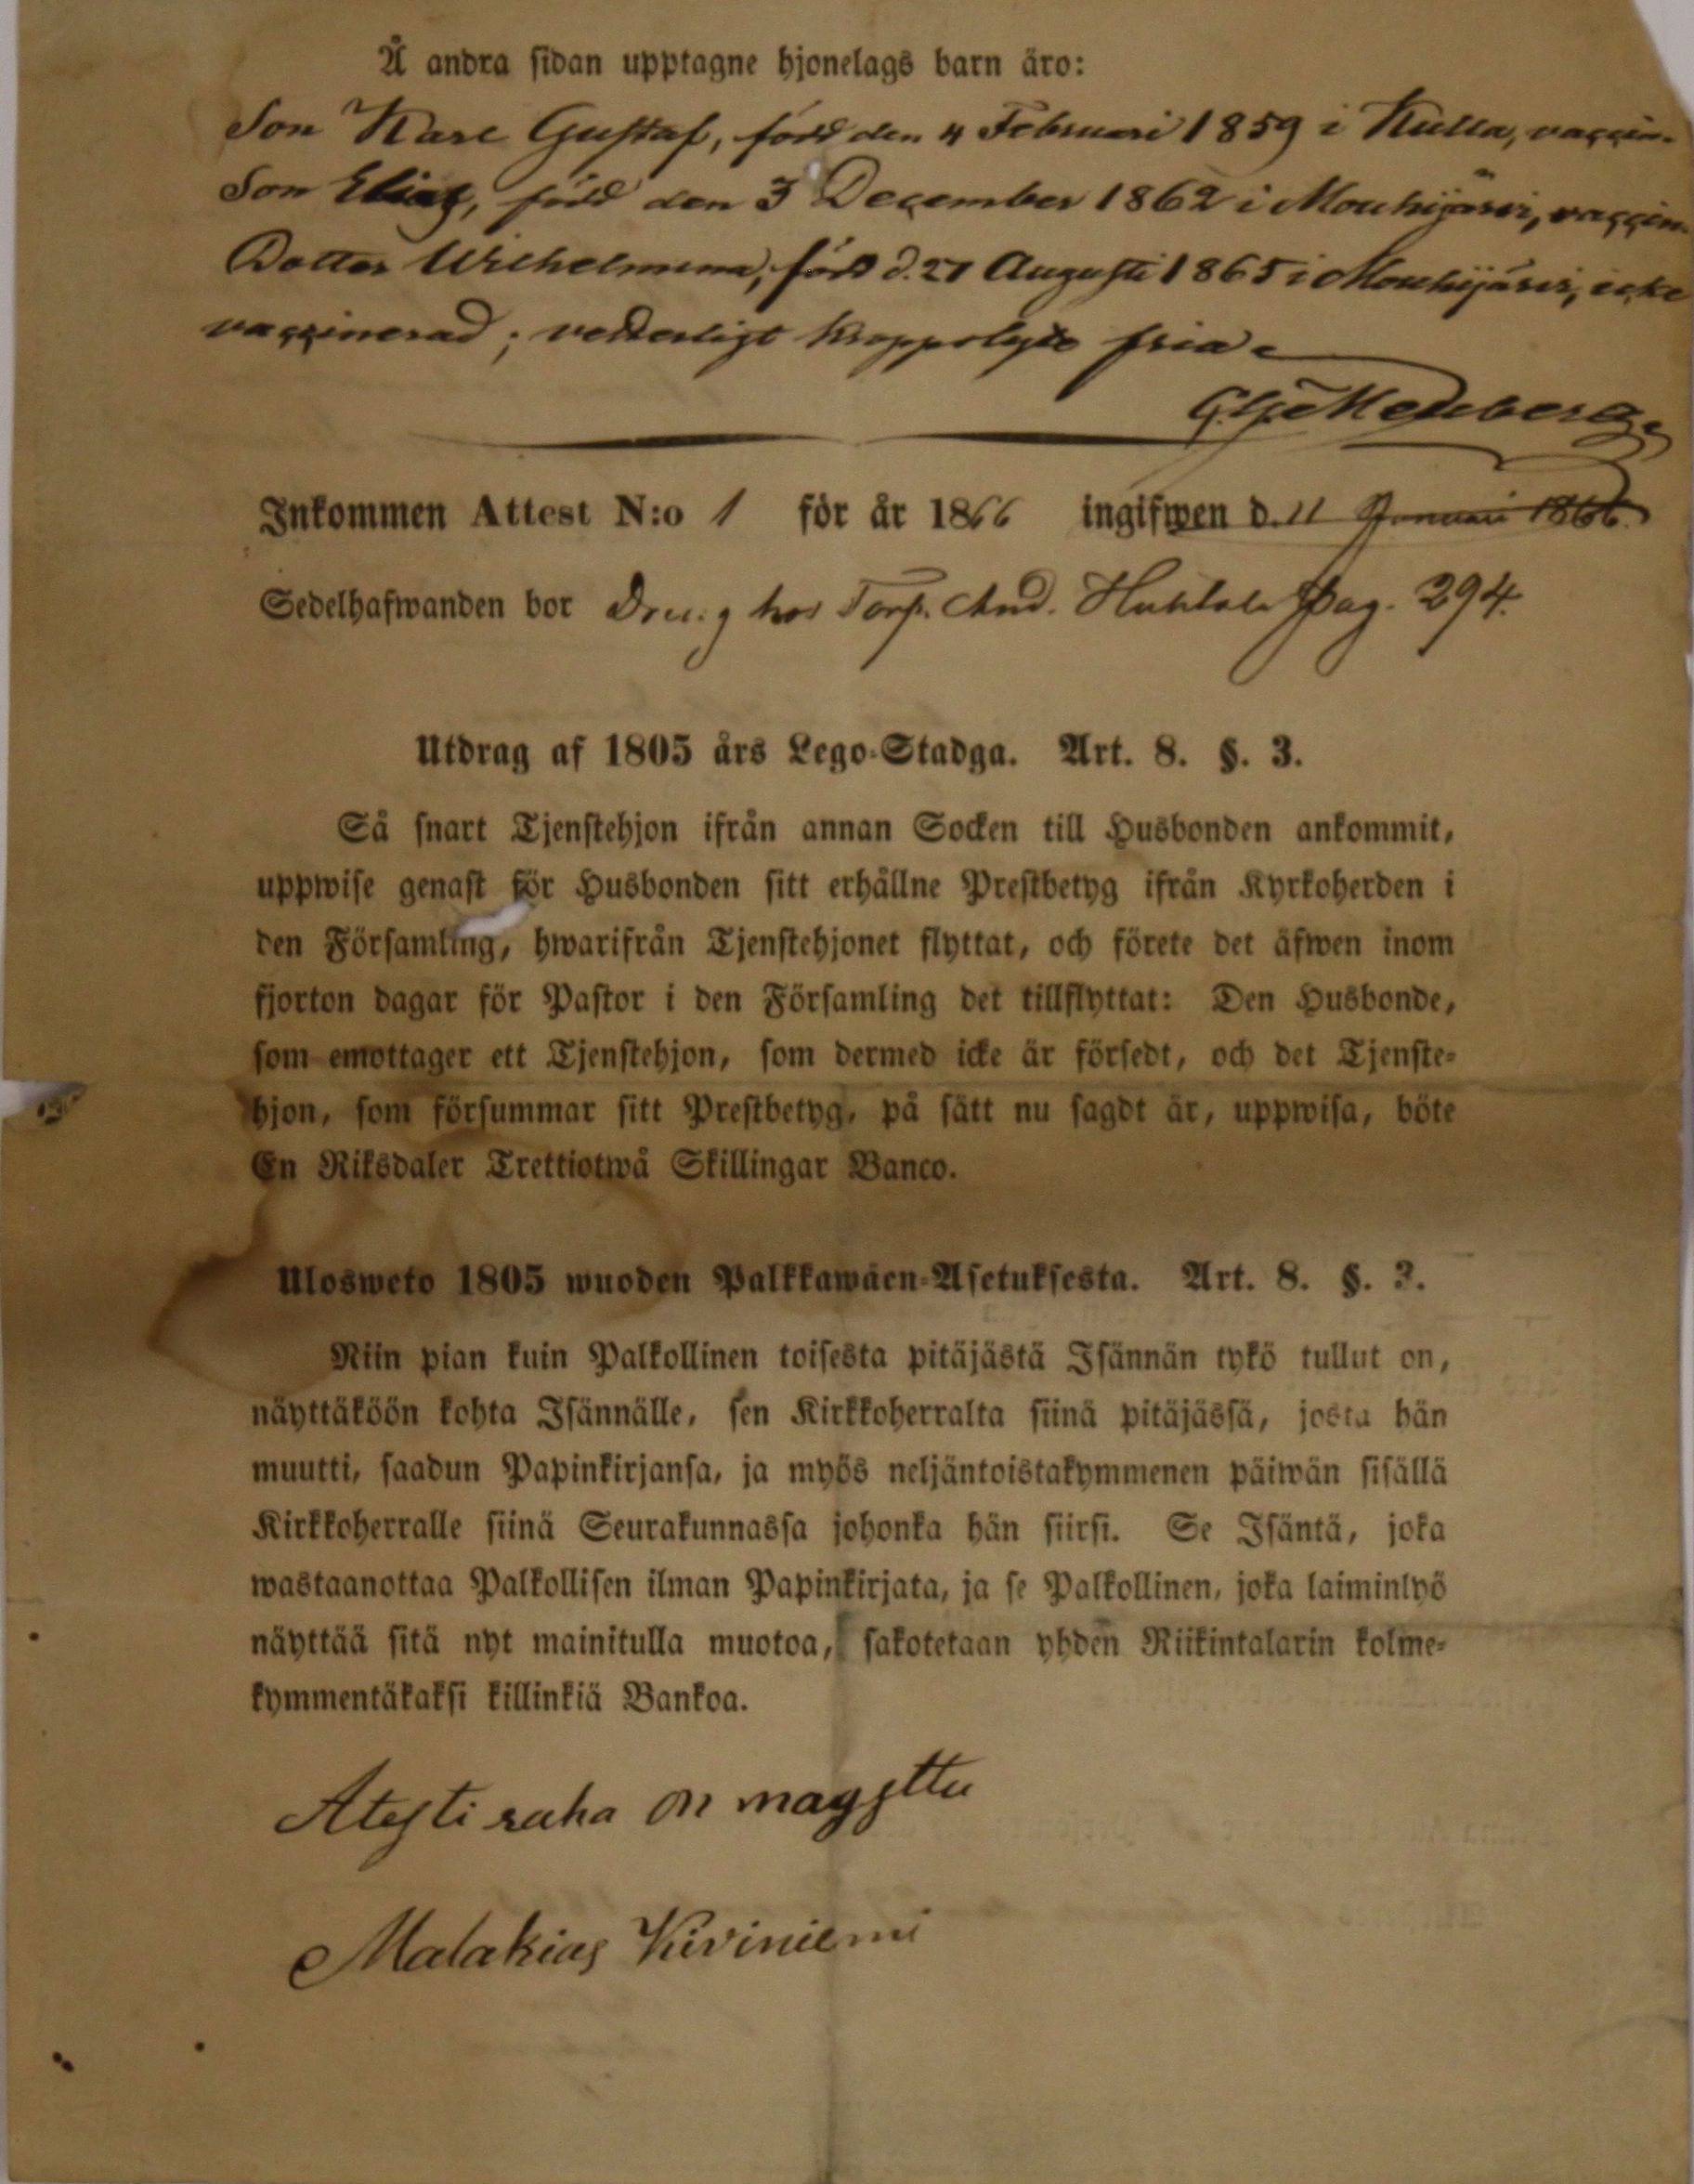 Å andra sidan upptagne hjonelags barn äro:
Son Karl Gustaf, född den 4 Februari 1859 i Kulla, vaccin.
Son Elias, född den 3 December 1862 i Mouhijärvi, vaccin.
Dotter Wilhelmina, född d. 27 Augusti 1865 i Mouhijärvi, icke
vaccinerad; vederligt kroppslyte fria.
Inkommen Attest N:o 1 för år 1866 ingifwen d. 11 Januari 1866.
Sedelhafwanden bor Dreng hos Torp. And. Huhtala Pag. 294.
Utdrag af 1805 års Lego-Stadga. Art. 8. §. 3.
Så snart Tjenstehjon ifrån annan Socken till Husbonden ankommit,
uppwise genast för Husbonden sitt erhållne Prestbetyg ifrån Kyrkoherden i
den Församling, hwarifrån Tjenstehjonet flyttat, och förete det äfwen inom
fjorton dagar för Pastor i den Församling det tillflyttat: Den Husbonde,
som emottager ett Tjenstehjon, som dermed icke är försedt, och det Tjenste-
hjon, som försummar sitt Prestbetyg, på sätt nu sagdt är, uppwisa, böte
En Riksdaler Trettiotwå Skillingar Banco.
Ulosweto 1805 wuoden Palkkawäen-Asetuksesta. Art. 8. §. 3.
Niin pian kuin Palkollinen toisesta pitäjästä Isännän tykö tullut on,
näyttäköön kohta Isännälle, sen Kirkkoherralta siinä pitäjässä, josta hän
muutti, saadun Papinkirjansa, ja myös neljäntoistakymmenen päiwän sisällä
Kirkkoherralle siinä Seurakunnassa johonka hän siirsi. Se Isäntä, joka
wastaanottaa Palkollisen ilman Papinkirjata, ja se Palkollinen, joka laiminlyö
näyttää sitä nyt mainitulla muotoa, sakotetaan yhden Riikintalarin kolme-
kymmentäkaksi killinkiä Bankoa.
Atesti raha on magsttu
Malakias Kiviniemi